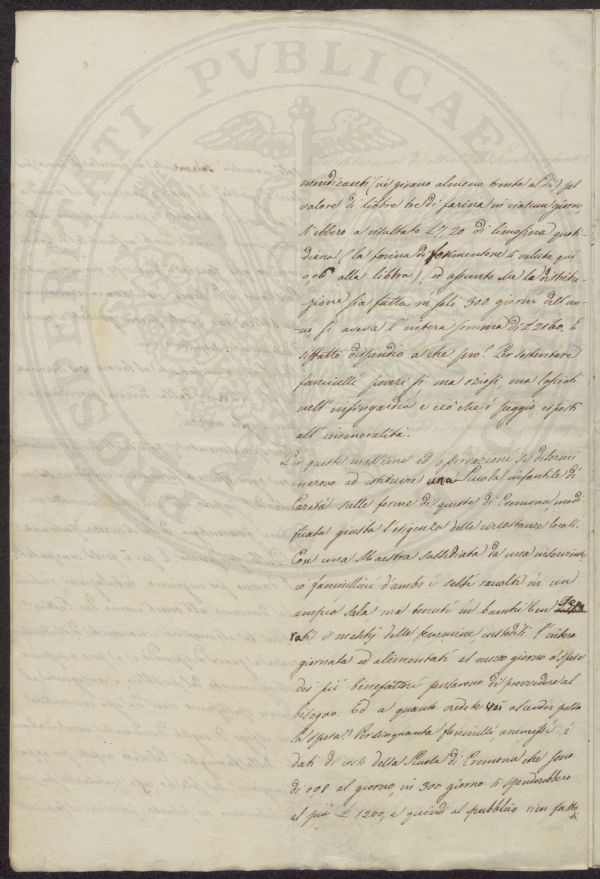 SOSPERITATI PVBLICAE
mendicanti (vi girano almeno trenta al dì) pel
valore di libbre tre di farina in ciascun giorno,
si ebbero a risultato £ 7,20 di limosina quoti-
diana (la farina di formentone si valuta qui
0,08 alla libbra), ed assunto che la distribu-
zione sia fatta in soli 300 giorni dell'an-
no, si aveva l'intera somma di £ 2160, e
siffatto dispendio a che pro? Per sostentare
fanciulli poveri sì ma oziosi, ma lasciati
nell'infingardia e ciò che è peggio esposti
all'immoralità.
Per queste massime ed osservazioni si determi
narono ad istituire una Scuola infantile di
Carità sulle forme di queste di Cremona modi
ficata giusta l'esigenza delle circostanze locali.
Con una Maestra sussidiata da una inserviente
i fanciullini d'ambo i sessi raccolti in un
ampia sala ma tenuti in banchi ben Sepa
rati i maschj dalle femmine custoditi l'intera
giornata ed alimentati al mezzo giorno a spese
dei pii benefattori pensarono di provvedere al
bisogno. Ed a quanto credete voi ascender possa
la spesa? Per cinquanta fanciulli, ammessi i
dati di costo della Scuola di Cremona che sono
di 0,08 al giorno in 300 giorno si spenderebbero
al più £ 1200, e quindi al pubblico vien fatto